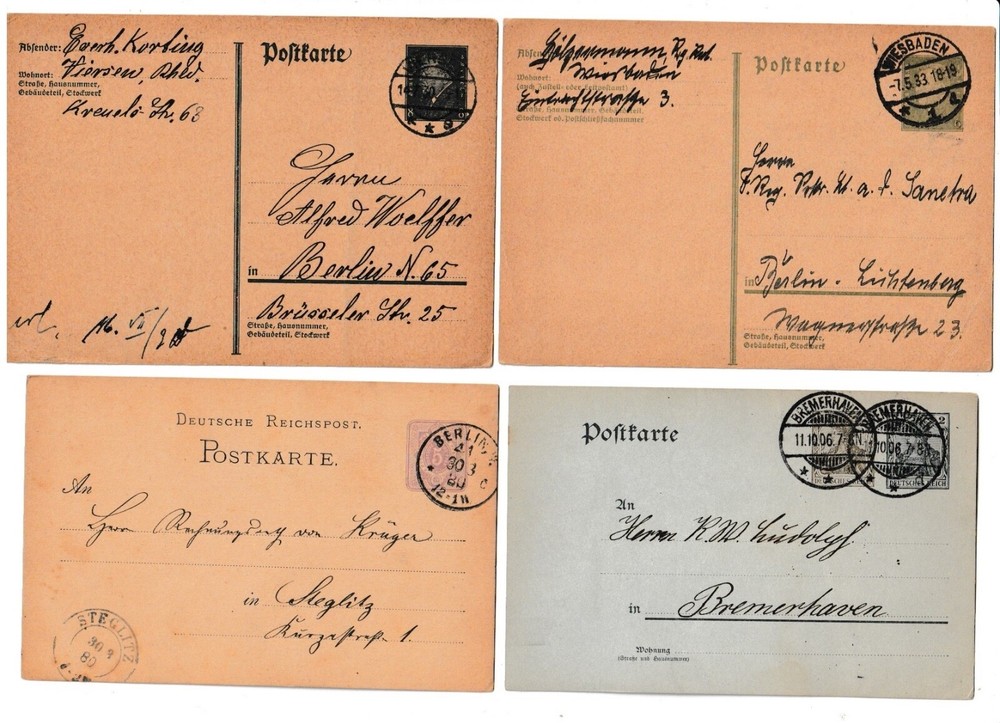 Absender: Everh. Korting
Wohnort: Viersen, Rhld.
Straße, Hausnummer,
Gebäudeteil, Stockwerk
Postkarte
8
Herrn
Alfred Woelffer
in Berlin N. 65
Brüsseler Str. 25
Straße, Hausnummer,
Gebäudeteil, Stockwerk
Wiesbaden
Wohnort:
(auch Zustell- oder Leitpostamt)
Straße, Hausnummer, Gebäudeteil,
Stockwerk od. Postschließfachnummer
3.
Postkarte
WIESBADEN
-7.5.33 18-19
Herrn
in Berlin - Lichtenberg
Wagnerstraße 23.
Straße, Hausnummer,
Gebäudeteil, Stockwerk
DEUTSCHE REICHSPOST.
POSTKARTE.
BERLIN
30 3
80
12-1N
An
Herrn Rechnungsrath von Krüger
in Steglitz
1.
STEGLITZ
30 3
80
Postkarte
BREMERHAVEN
11.10.06.7-8N
BREMERHAVEN
10.06.7-8
DEUTSCHES REICH
An
Herrn K.W. Ludolph
in Bremerhaven
Wohnung
(Straße und Hausnummer)